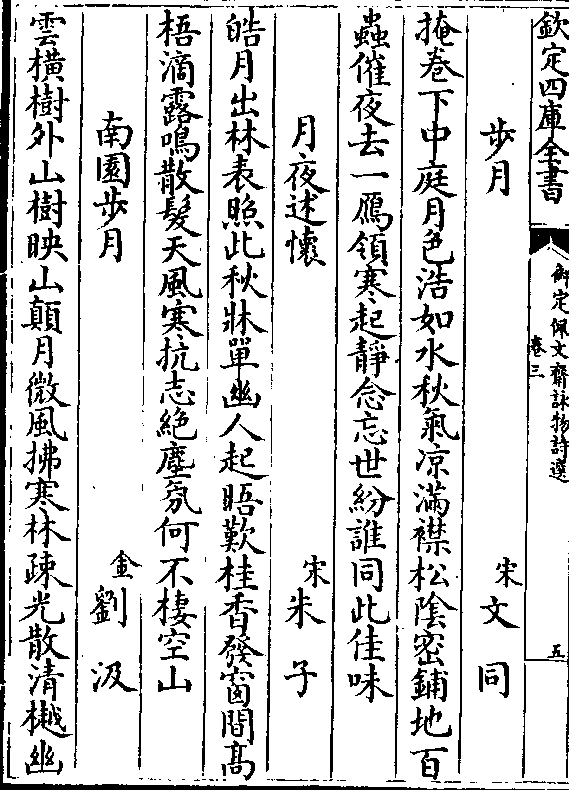 欽定四庫全書
御定佩文齋詠物詩選
卷三
五
步月
宋文同
掩卷下中庭月色浩如水秋氣凉滿襟松陰密鋪地百
蟲催夜去一鴈領寒起靜念忘世紛誰同此佳味
月夜述懷
宋朱子
皓月出林表照此秋牀單幽人起晤歎桂香發窗間高
梧滴露鳴散髮天風寒抗志絶塵氛何不棲空山
南園步月
金劉汲
雲橫樹外山樹映山顛月微風拂寒林疎光散清樾幽